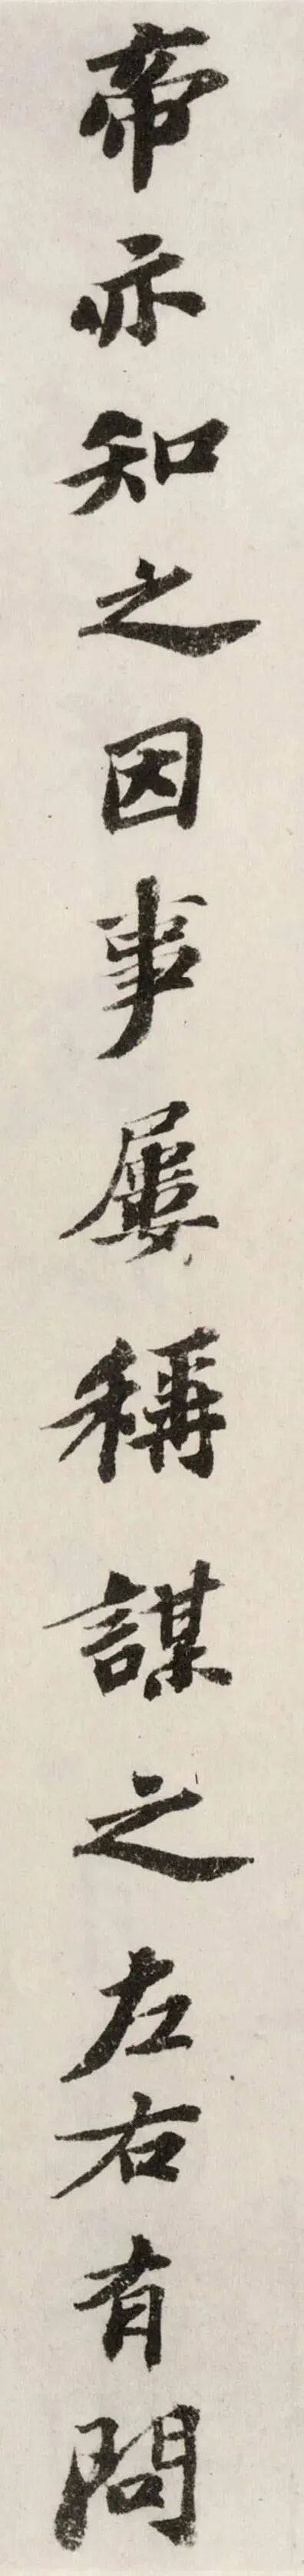 帝亦知之因事屢稱謀之左右有問